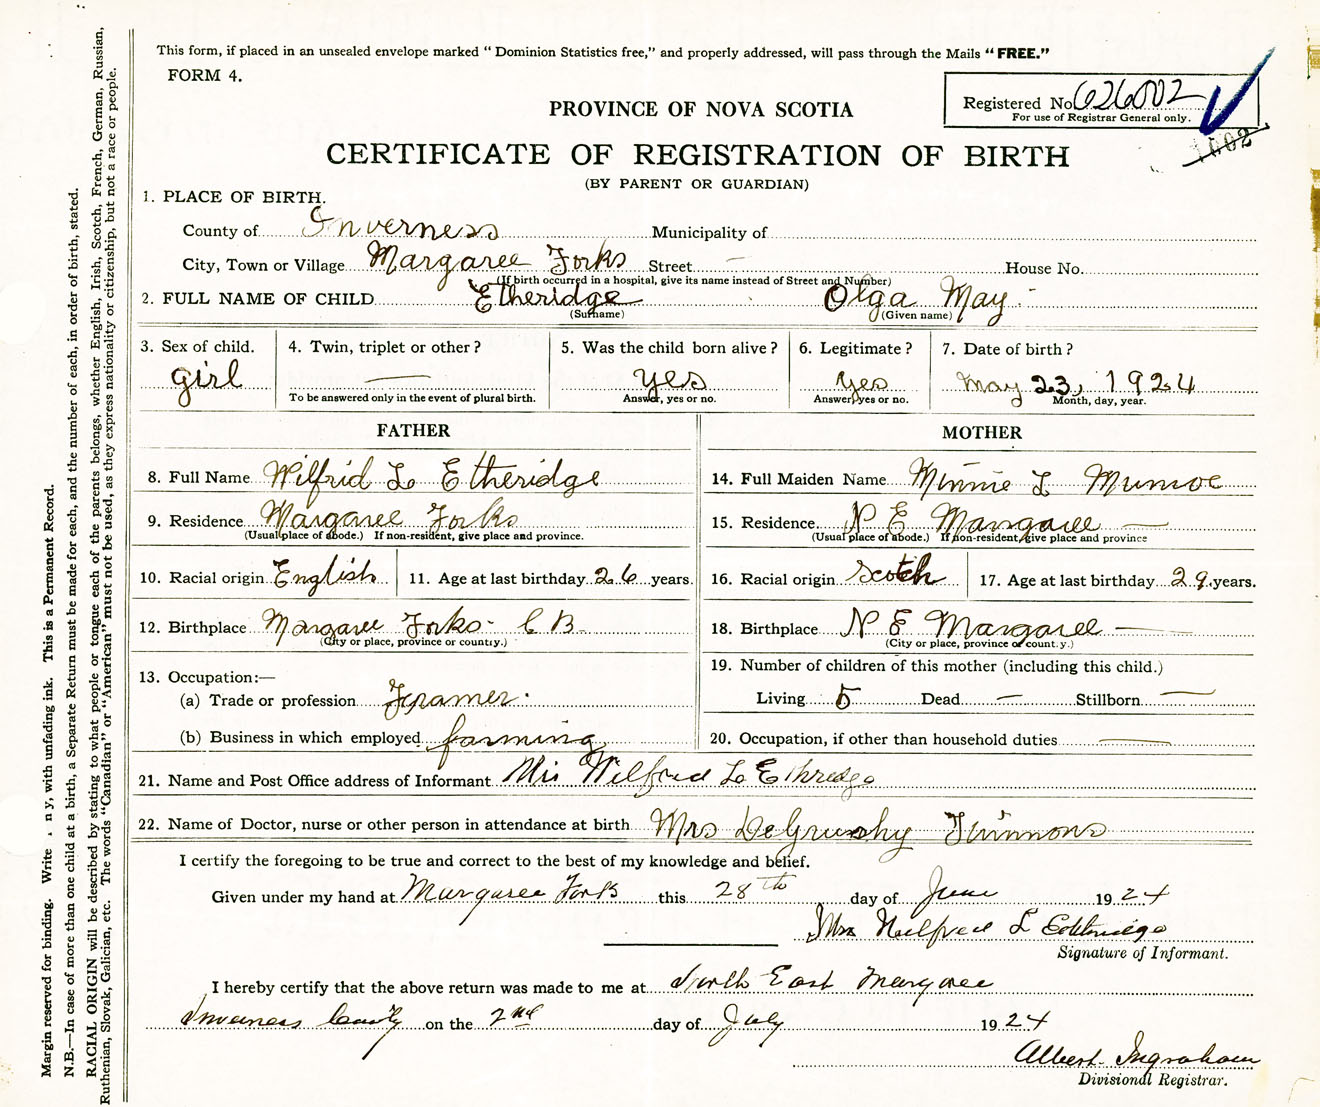 This form, if placed in an unsealed envelope marked “ Dominion Statistics free,” and properly addressed, will pass through the Mails “ FREE.”
FORM 4.
Registered No 626002
For use of Registrar General only.
1002
PROVINCE OF NOVA SCOTIA
CERTIFICATE OF REGISTRATION OF BIRTH
(BY PARENT OR GUARDIAN)
1. PLACE OF BIRTH.
County of Inverness Municipality of
City, Town or Village Margaree Forks Street — House No.
(If birth occurred in a hospital, give its name instead of Street and Number)
2. FULL NAME OF CHILD Etheridge Olga May
(Surname) (Given name)
3. Sex of child. 4. Twin, triplet or other ? 5. Was the child born alive ? 6. Legitimate ? 7. Date of birth ?
girl — yes yes May 23, 1924
To be answered only in the event of plural birth. Answer, yes or no. Answer, yes or no. Month, day, year.
FATHER
8. Full Name Wilfrid L Etheridge
9. Residence Margaree Forks
(Usual place of abode.) If non-resident, give place and province.
10. Racial origin English 11. Age at last birthday 26 years.
12. Birthplace Margaree Forks - C B
(City or place, province or country.)
13. Occupation:—
(a) Trade or profession Framer
(b) Business in which employed farming
MOTHER
14. Full Maiden Name Minnie L Munroe
15. Residence N E Margaree —
(Usual place of abode.) If non-resident, give place and province
16. Racial origin Scotch 17. Age at last birthday 29 years.
18. Birthplace N E Margaree —
(City or place, province or count.y.)
19. Number of children of this mother (including this child.)
Living 5 Dead — Stillborn —
20. Occupation, if other than household duties —
21. Name and Post Office address of Informant Mrs Wilfred L Ethredge
22. Name of Doctor, nurse or other person in attendance at birth Mrs DeGruchy
I certify the foregoing to be true and correct to the best of my knowledge and belief.
Given under my hand at Margaree Forks this 28th day of June 1924
Mrs Wilfred L Etheridge
Signature of Informant.
I hereby certify that the above return was made to me at North East Margaree
Inverness County on the 2nd day of July 1924
Albert Ingraham
Divisional Registrar.
Margin reserved for binding. Write ny, with unfading ink. This is a Permanent Record.
N.B.—In case of more than one child at a birth, a Separate Return must be made for each, and the number of each, in order of birth, stated.
RACIAL ORIGIN will be described by stating to what people or tongue each of the parents belongs, whether English, Irish, Scotch, French, German, Russian,
Ruthenian, Slovak, Galician, etc. The words “Canadian” or “American” must not be used, as they express nationality or citizenship, but not a race or people.